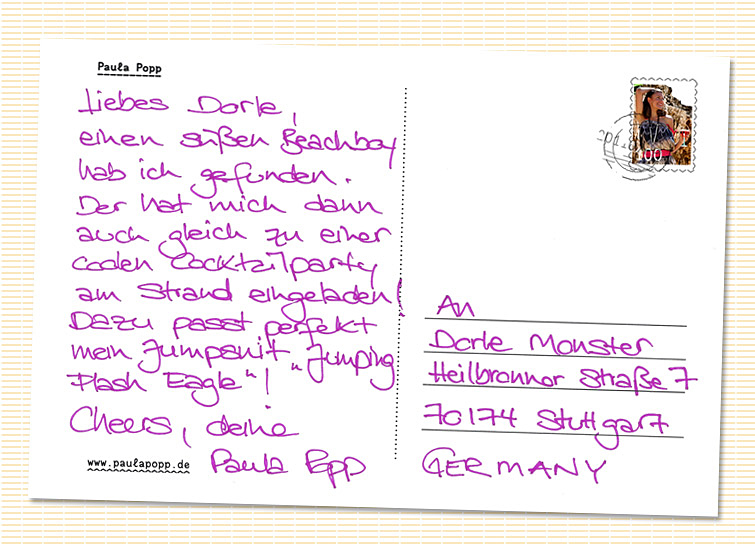 Paula Popp
Liebes Dorle,
einen süßen Beachboy
hab ich gefunden.
Der hat mich dann
auch gleich zu einer
coolen Cocktailparty
am Strand eingeladen!
Dazu passt perfekt
mein Jumpsuit „Jumping
Flash Eagle"!
Cheers, deine
Paula Popp
www.paulapopp.de
100
An
Dorle Monster
Heilbronner Straße 7
70174 Stuttgart
GERMANY